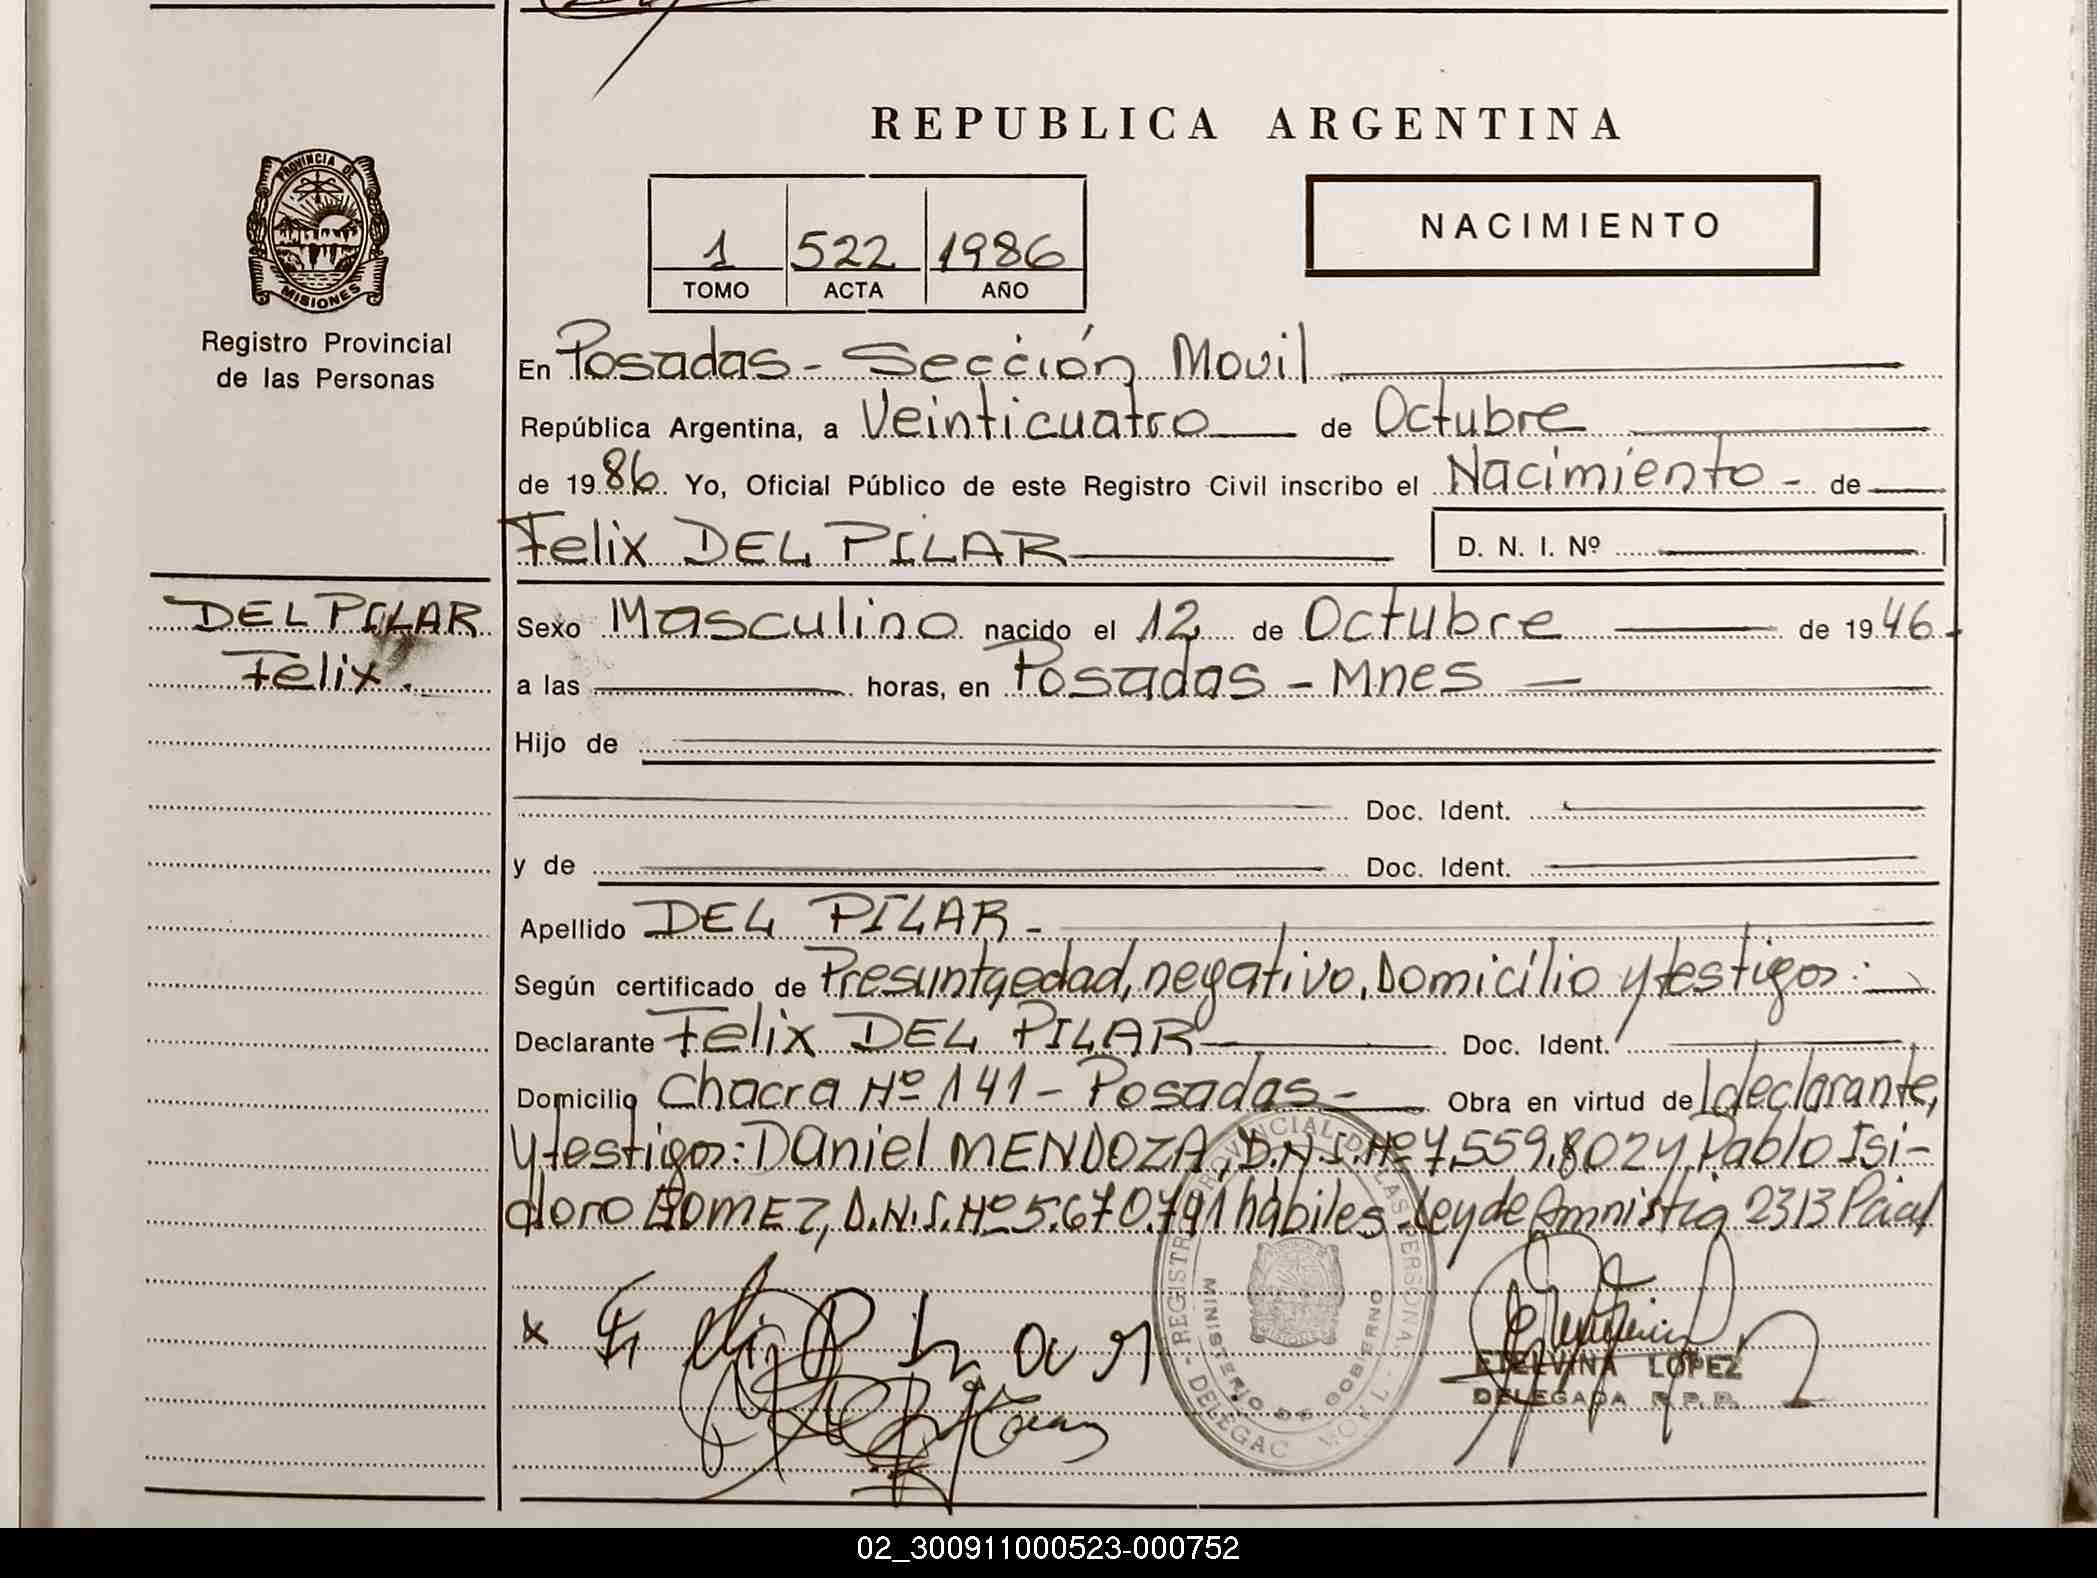 REPUBLICA ARGENTINA
PROVINCIA DE
MISIONES
Registro Provincial
de las Personas
1 522 1986
TOMO ACTA AÑO
NACIMIENTO
En Posadas - Sección Movil
República Argentina, a Veinticuatro de Octubre
de 1986 Yo, Oficial Público de este Registro Civil inscribo el Nacimiento - de
Felix DEL PILAR D. N. I. Nº
DEL PILAR
Felix.
Sexo Masculino nacido el 12 de Octubre de 1946.
a las horas, en Posadas - Mnes
Hijo de
Doc. Ident.
y de Doc. Ident.
Apellido DEL PILAR -
Según certificado de Presuntaedad, negativo, Domicilio y testigos:
Declarante Felix DEL PILAR Doc. Ident.
Domicilio Chacra Nº 141 - Posadas - Obra en virtud de l declarante,
y testigos: Daniel MENDOZA, D.N.I. Nº 7.559.802 y Pablo Isi-
doro GOMEZ, D.N.I. Nº 5.670.791 habiles - Ley de Amnistia 2313 Pcial
MINISTERIO DE GOBIERNO
ETELVINA LOPEZ
DELEGADA R. P. P.
02_300911000523-000752